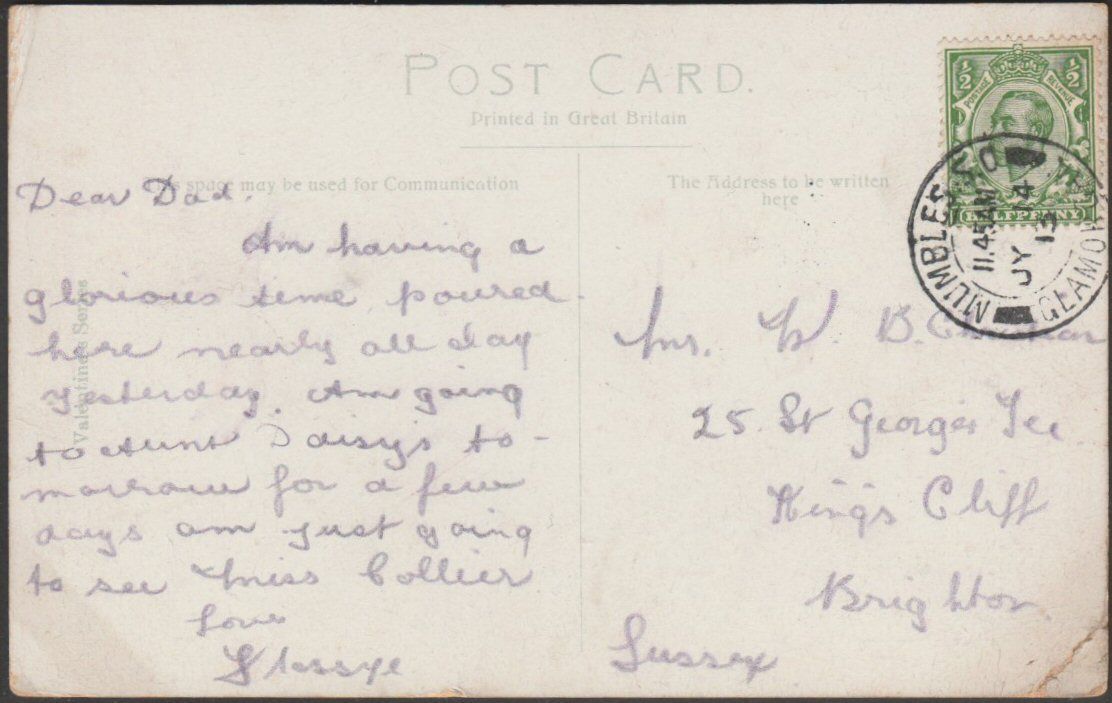 POST CARD.
Printed in Great Britain
This space may be used for Communication
The Address to be written
here
Valentine's Series
Dear Dad.
Am having a
glorious time poured
here nearly all day
yesterday. Am going
to Aunt Daisys to-
morrow for a few
days am just going
to see Miss Collier
Love
Mr. W. B.
25. St George's Tce.
King's Cliff
Brighton
Sussex
½ ½
POSTAGE REVENUE
HALFPENNY
MUMBLES
GLAMORGAN
11.45AM
JY 14
13